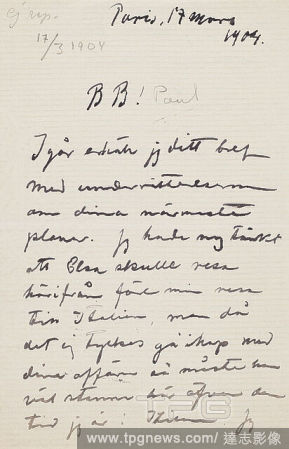 Ej rep.
17/3 1904
Paris, 17 mars
1904.
BB! Paul
Igår erhöll jg ditt bref
med underrättelserna
om dina närmaste
planer. Jg hade nog tänkt
att Elsa skulle resa
härifrån före min resa
till Italien, men då
det ej tyckes gå ihop med
dina affärer så måste hon
väl stanna här äfven den
tid jg är i Italien. Jg
TPG
www.tpgnews.com/達志影像